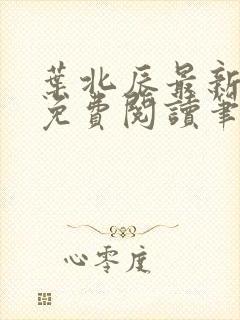 葉北辰最新
免費閱讀筆
心零度